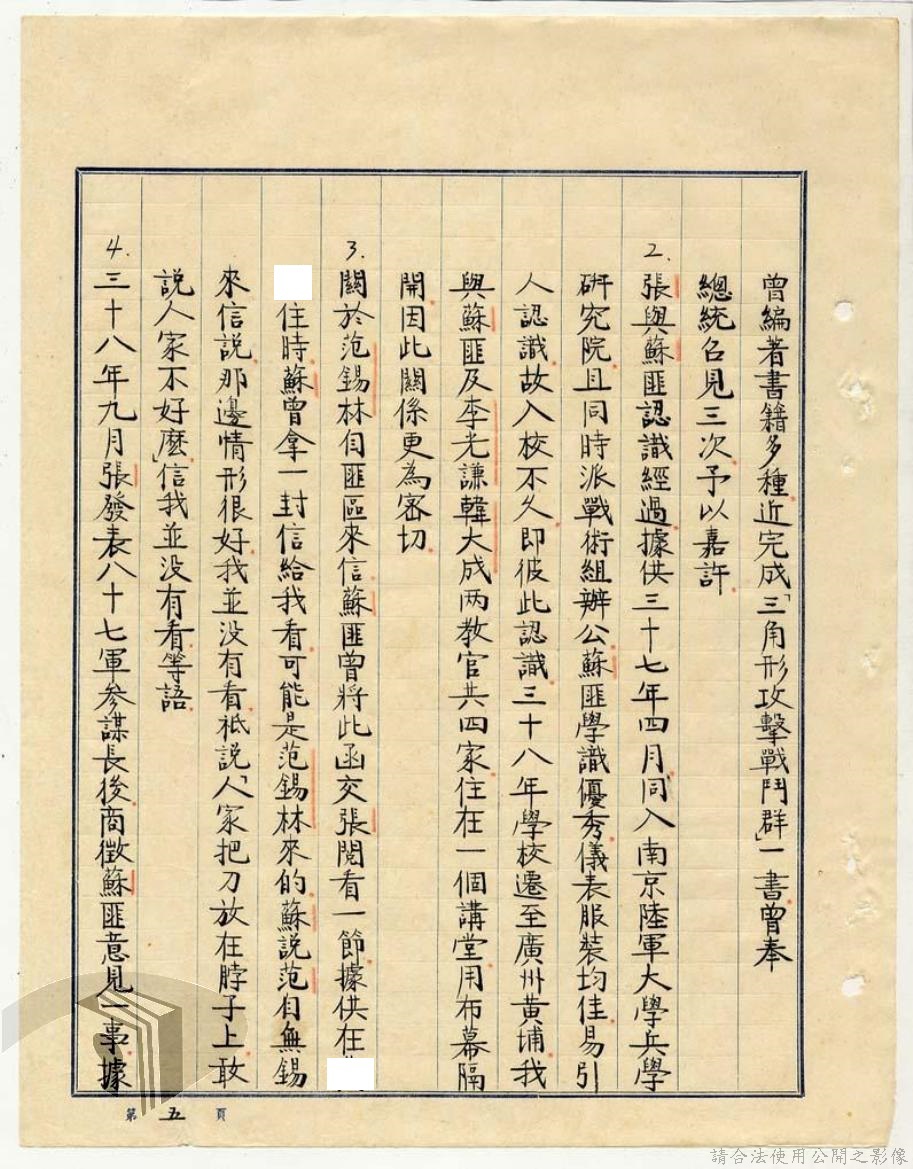 曾編著書籍多種近完成「三角形攻擊戰鬥群」一書曾奉
總統召見三次予以嘉許
2.張與蘇匪認識經過據供三十七年四月同入南京陸軍大學兵學
研究院且同時派戰術組辦公蘇匪學識優秀儀表服裝均佳易引
人認識故入校不久即彼此認識三十八年學校遷至廣州黃埔我
與蘇匪及李光謙韓大成两教官共四家住在一個講堂用布幕隔
開因此關係更為密切
3.關於范錫林自匪區來信蘇匪曾將此函交張閱看一節據供在
住時蘇曾拿一封信給我看可能是范錫林來的蘇説范自無錫
來信説那邊情形很好我並没有看祇説「人家把刀放在脖子上敢
説人家不好麽」信我並没有看等語
4.三十八年九月張發表八十七軍參謀長後商徵蘇匪意見一事據
第五頁
請合法使用公開之影像